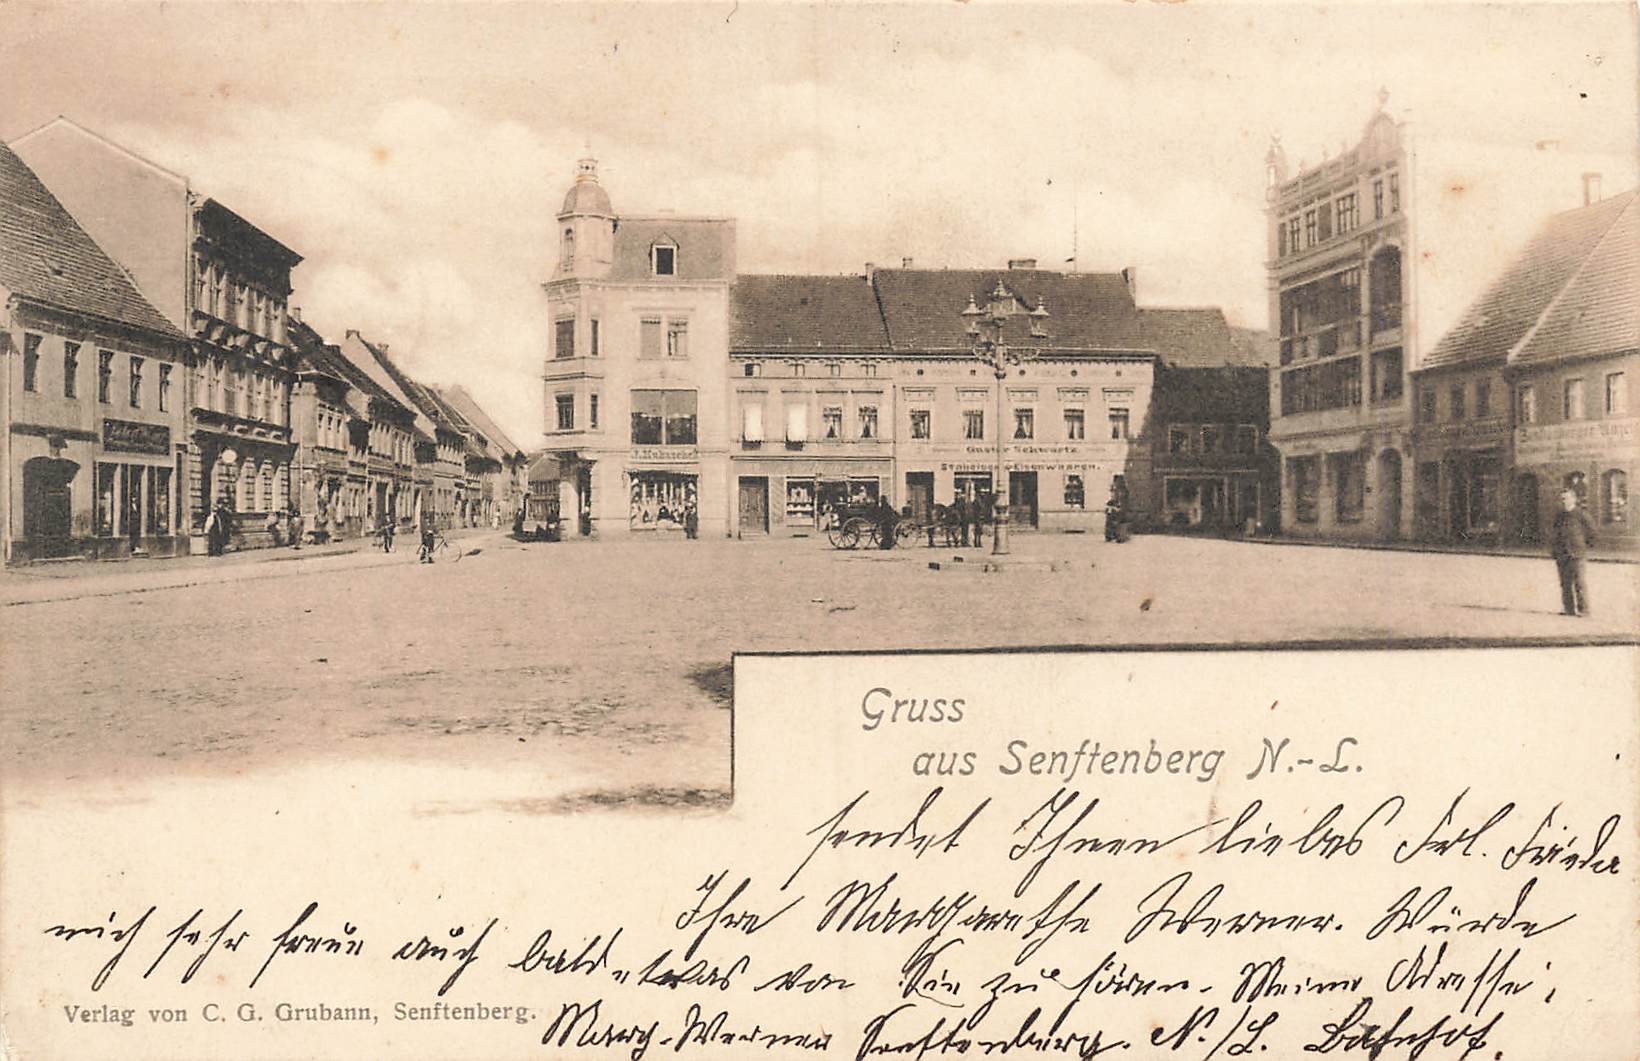 J. Kubaschek
Gustav Schwartz.
Gruss
aus Senftenberg N.-L.
sendet Ihnen liebes Frl. Frieda
Ihre Margarethe Werner. Würde
mich sehr freuen auch bald etwas von Sie zu hören. Meine Adresse;
Marg. Werner Senftenberg. N./L. Bahnhof.
Verlag von C. G. Grubann, Senftenberg.